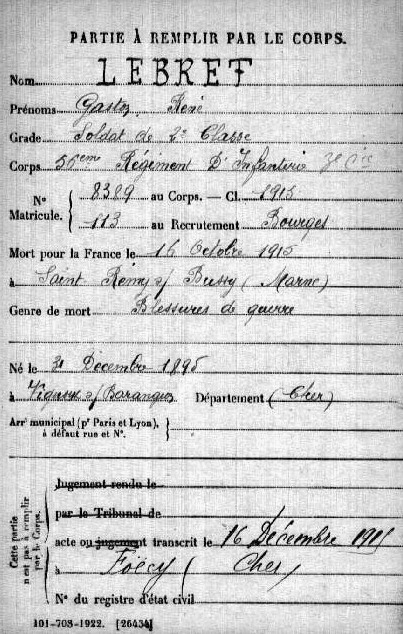 PARTIE À REMPLIR PAR LE CORPS.
Nom LEBRET
Prénoms Gaston René
Grade Soldat de 2e Classe
Corps 56ème Régiment D'Infanterie 3e Cie
N° Matricule. { 8389 au Corps. — Cl. 1915
113 au Recrutement Bourges
Mort pour la France le 16 Octobre 1915
à Saint Rémy s/ Bussy (Marne)
Genre de mort Blessures de guerre
Né le Décembre 1895
à Vignoux s/ Barangeon Département (Cher)
Arrt municipal (pr Paris et Lyon), à défaut rue et N°. {
Cette partie n'est pas à remplir par le Corps.
Jugement rendu le
par le Tribunal de
acte ou jugement transcrit le 16 Décembre 1915
à Foëcy (Cher)
N° du registre d'état civil
101-708-1922. [26434]